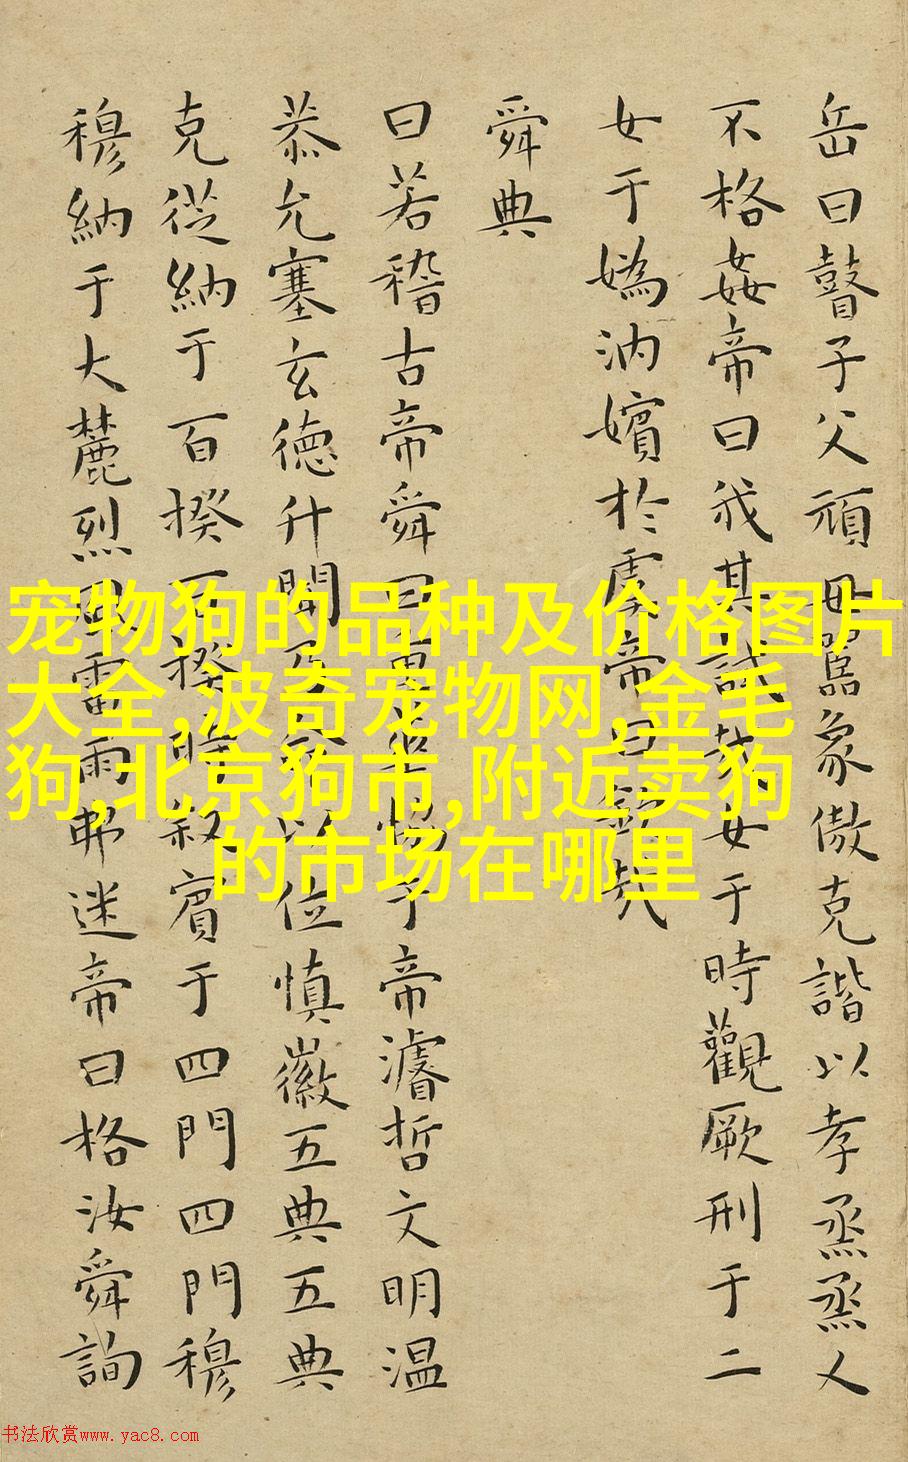 岳曰瞽子父頑母嚚象傲克諧以孝烝烝乂
不格姦帝曰我其試哉女于時觀厥刑于二
女于媯汭嬪於虞帝曰欽哉
舜典
曰若稽古帝舜曰重華恊于帝濬哲文明温
恭允塞玄德升聞乃命以位慎徽五典五典
克從納于百揆百揆時敘賓于四門四門穆
穆納于大麓烈風雷雨弗迷帝曰格汝舜詢
宠物狗的品种及价格图片
大全,波奇宠物网,金毛
狗,北京狗市,附近卖狗
的市场在哪里
书法欣赏www.yac8.com